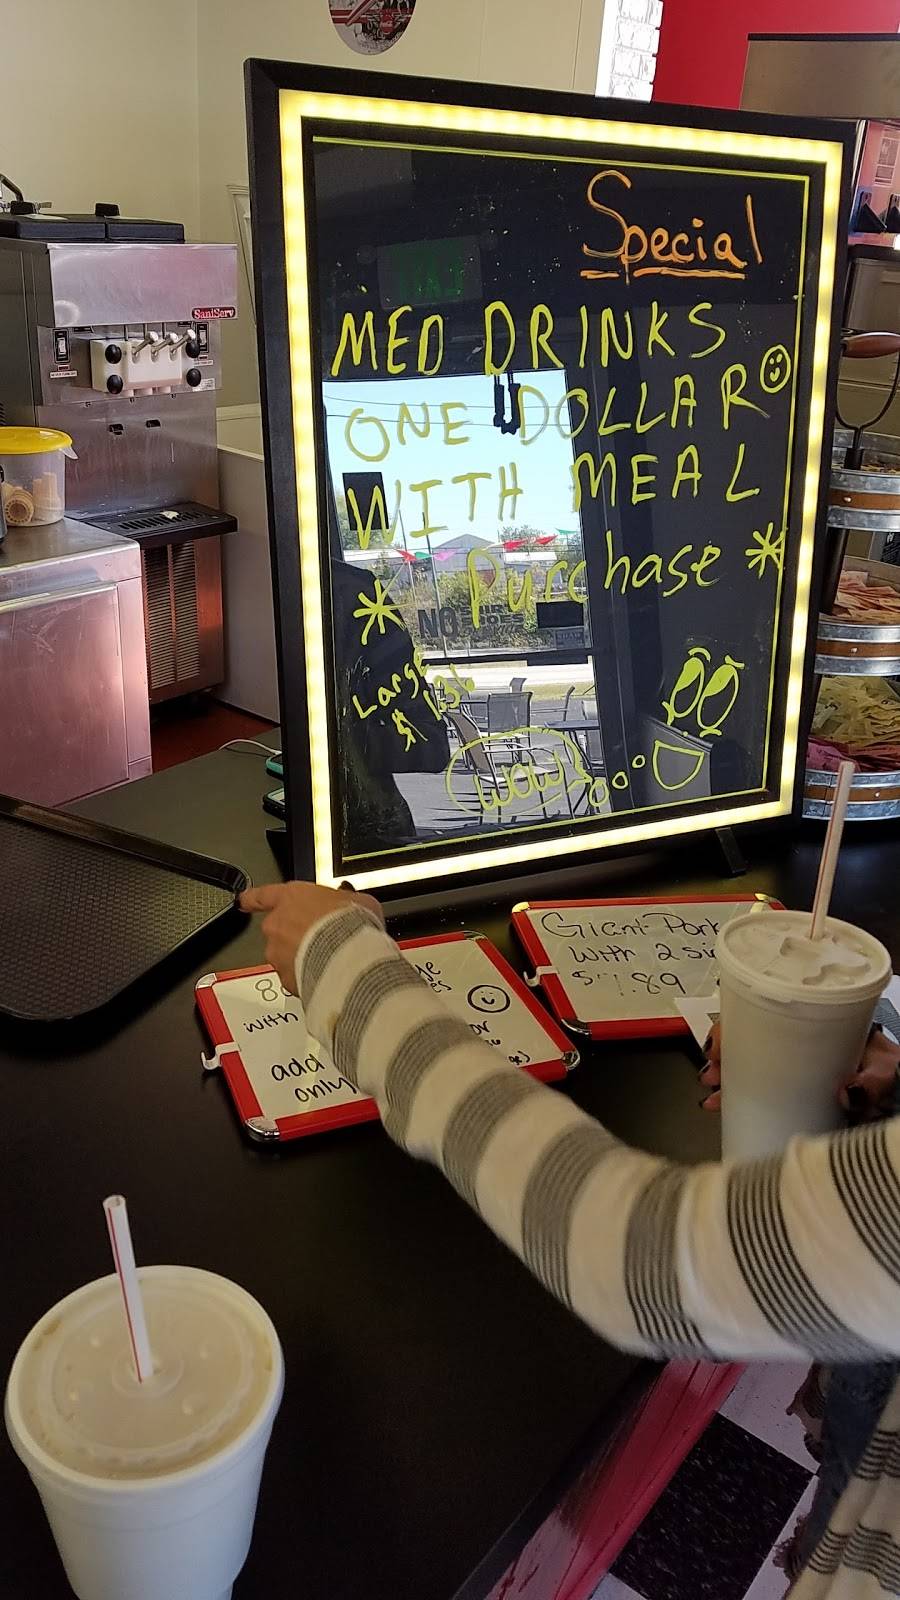 SaniServ
Special
MED DRINKS
ONE DOLLAR
WITH MEAL
* Purchase *
Large
$ 1.36
WOW
NO
Giant Pork
With 2
.89
with
add
only
or